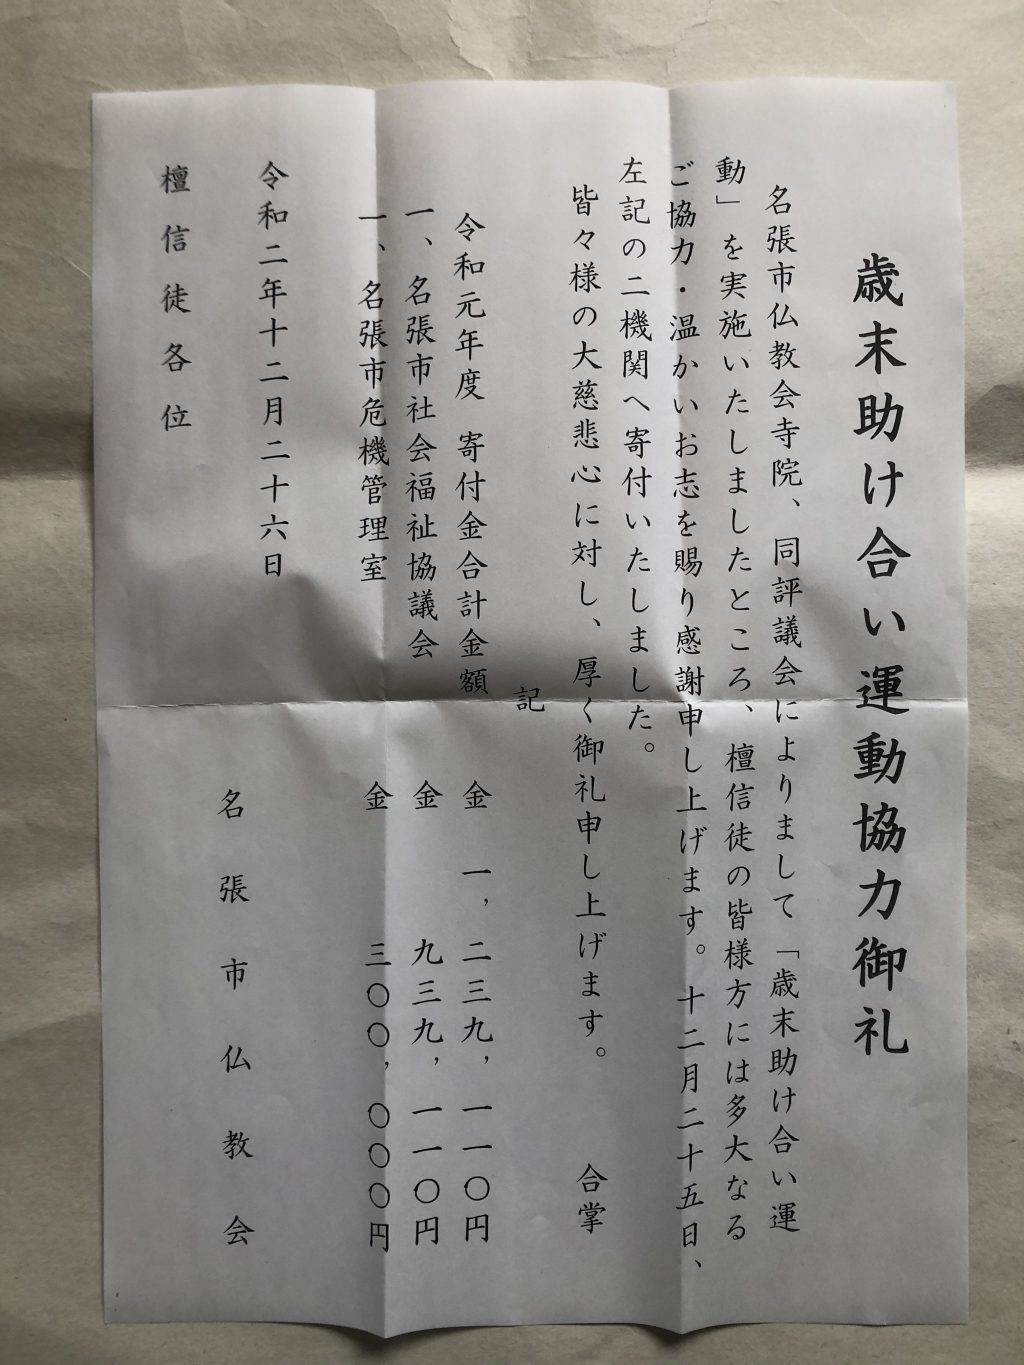 歳末助け合い運動協力御礼
名張市仏教会寺院、同評議会によりまして「歳末助け合い運
動」を実施いたしましたところ、檀信徒の皆様方には多大なる
ご協力・温かいお志を賜り感謝申し上げます。十二月二十五日、
左記の二機関へ寄付いたしました。
皆々様の大慈悲心に対し、厚く御礼申し上げます。 合掌
記
令和元年度 寄付金合計金額 金 一，二三九，一一〇円
一、名張市社会福祉協議会 金 九三九，一一〇円
一、名張市危機管理室 金 三〇〇，〇〇〇円
令和二年十二月二十六日
名張市仏教会
檀信徒各位